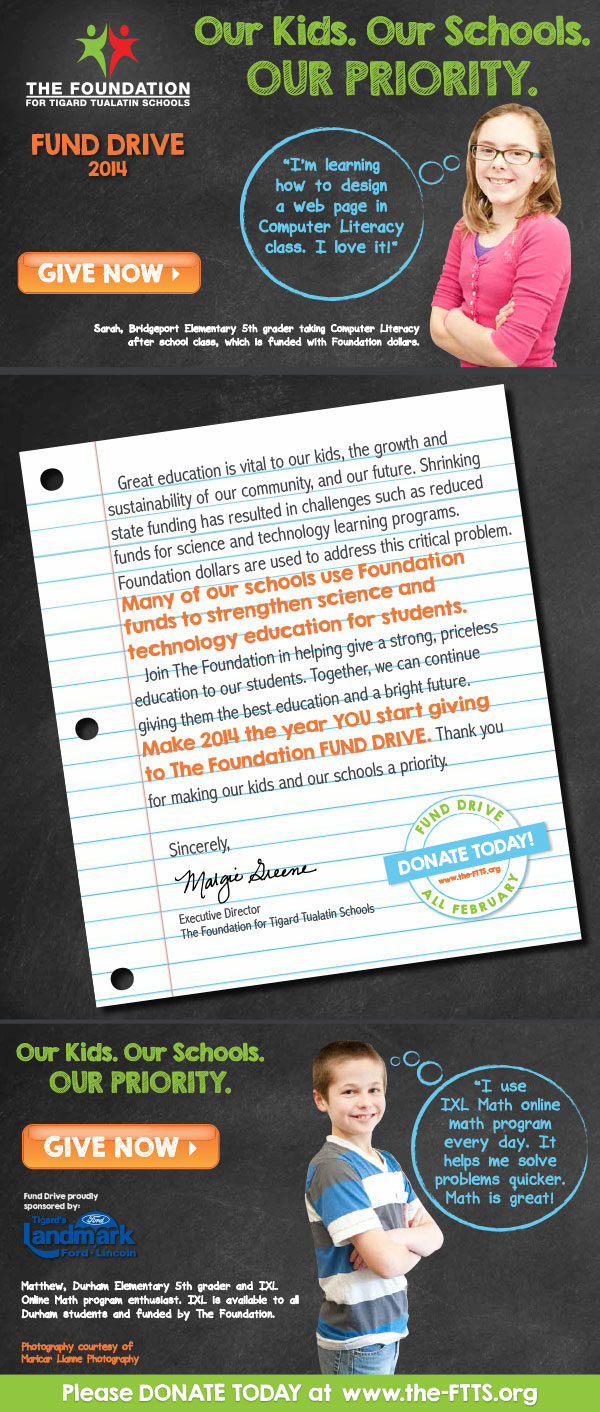 Our Kids. Our Schools.
OUR PRIORITY.
THE FOUNDATION
FOR TIGARD TUALATIN SCHOOLS
FUND DRIVE
2014
"I'm learning
how to design
a web page in
Computer Literacy
class. I love it!"
GIVE NOW
Sarah, Bridgeport Elementary 5th grader taking Computer Literacy
after school class, which is funded with Foundation dollars.
Great education is vital to our kids, the growth and
sustainability of our community, and our future. Shrinking
state funding has resulted in challenges such as reduced
funds for science and technology learning programs.
Foundation dollars are used to address this critical problem.
Many of our schools use Foundation
funds to strengthen science and
technology education for students.
Join The Foundation in helping give a strong, priceless
education to our students. Together, we can continue
giving them the best education and a bright future.
Make 2014 the year YOU start giving
to The Foundation FUND DRIVE. Thank you
for making our kids and our schools a priority.
Sincerely,
Margie Greene
Executive Director
The Foundation for Tigard Tualatin Schools
FUND DRIVE
DONATE TODAY!
www.the-FTTS.org
ALL FEBRUARY
Our Kids. Our Schools.
OUR PRIORITY.
GIVE NOW
"I use
IXL Math online
math program
every day. It
helps me solve
problems quicker.
Math is great!
Fund Drive proudly
sponsored by:
Tigard's
Ford
Landmark
Ford • Lincoln
Matthew, Durham Elementary 5th grader and IXL
Online Math program enthusiast. IXL is available to all
Durham students and funded by The Foundation.
Photography courtesy of
Maricar Lianne Photography
Please DONATE TODAY at www.the-FTTS.org